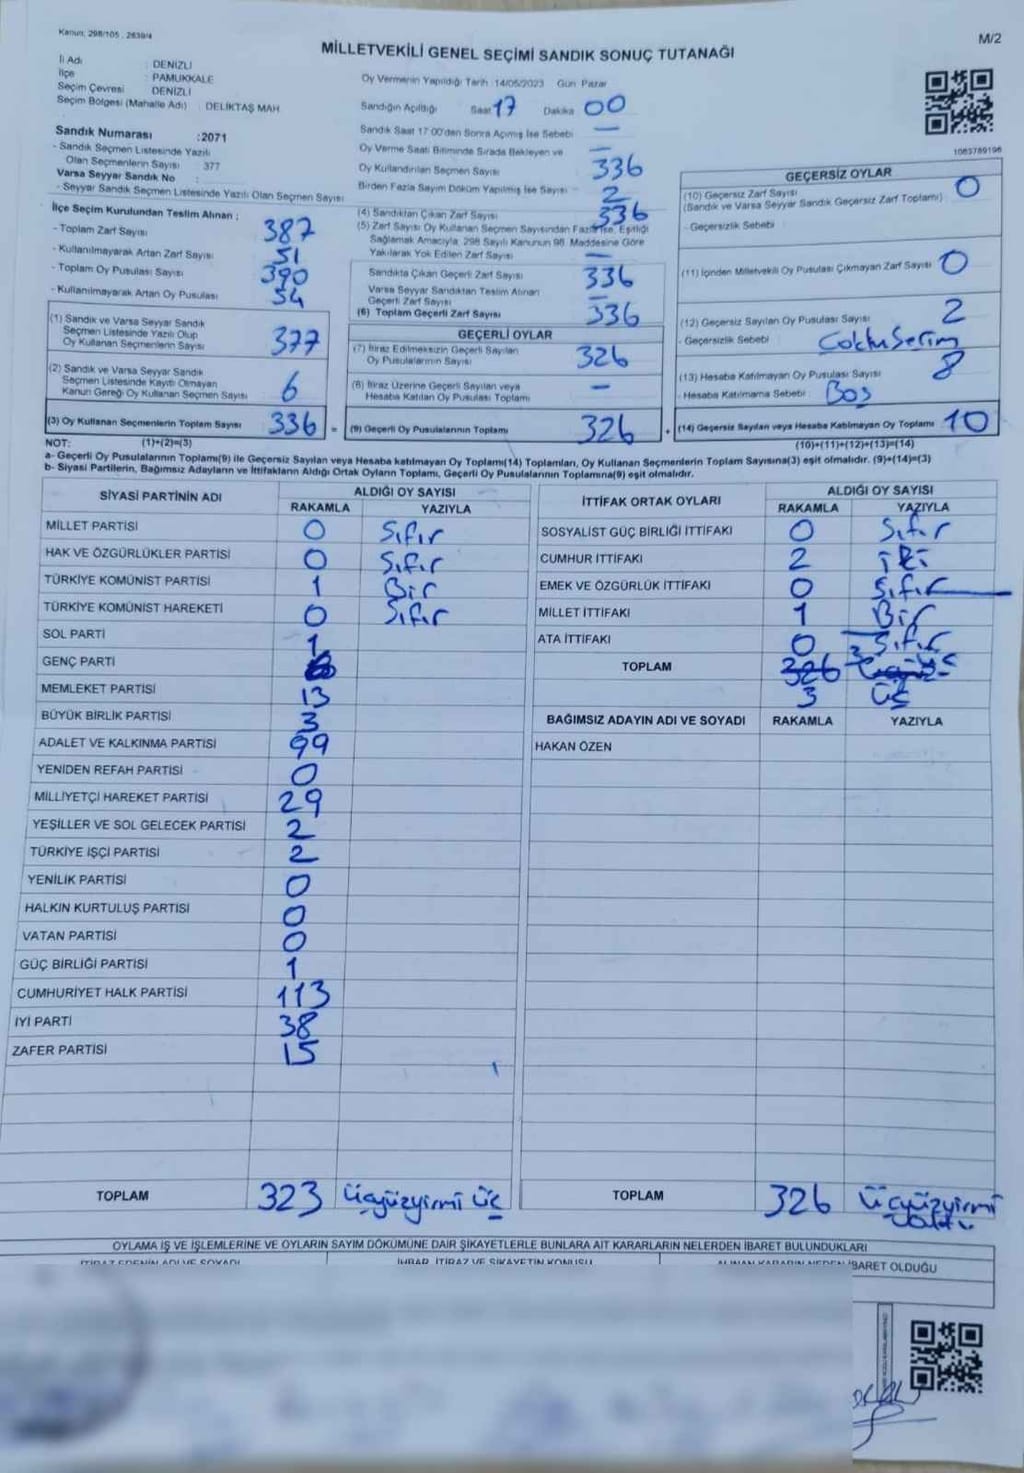 Kanun: 298/105 . 2839/4
M/2
MİLLETVEKİLİ GENEL SEÇİMİ SANDIK SONUÇ TUTANAĞI
İl Adı : DENİZLİ
İlçe : PAMUKKALE
Seçim Çevresi : DENİZLİ
Seçim Bölgesi (Mahalle Adı) : DELİKTAŞ MAH
Sandık Numarası :2071
- Sandık Seçmen Listesinde Yazılı
Olan Seçmenlerin Sayısı : 377
Varsa Seyyar Sandık No :
- Seyyar Sandık Seçmen Listesinde Yazılı Olan Seçmen Sayısı
Oy Vermenin Yapıldığı Tarih :14/05/2023 Gün Pazar
Sandığın Açıldığı Saat 17 Dakika 00
Sandık Saat 17:00'den Sonra Açımış İse Sebebi : —
Oy Verme Saati Bitiminde Sırada Bekleyen ve —
Oy Kullandırılan Seçmen Sayısı 336
Birden Fazla Sayım Döküm Yapılmış İse Sayısı 2
1063789196
İlçe Seçim Kurulundan Teslim Alınan :
- Toplam Zarf Sayısı 387
- Kullanılmayarak Artan Zarf Sayısı 51
- Toplam Oy Pusulası Sayısı 390
- Kullanılmayarak Artan Oy Pusulası 54
(1) Sandık ve Varsa Seyyar Sandık
Seçmen Listesinde Yazılı Olup
Oy Kullanan Seçmenlerin Sayısı 377
(2) Sandık ve Varsa Seyyar Sandık
Seçmen Listesinde Kayıtlı Olmayan
Kanun Gereği Oy Kullanan Seçmen Sayısı 6
(3) Oy Kullanan Seçmenlerin Toplam Sayısı 336 =
(4) Sandıktan Çıkan Zarf Sayısı 336
(5) Zarf Sayısı Oy Kullanan Seçmen Sayısından Fazla İse, Eşitliği
Sağlamak Amacıyla, 298 Sayılı Kanunun 98. Maddesine Göre
Yakılarak Yok Edilen Zarf Sayısı —
Sandıkta Çıkan Geçerli Zarf Sayısı 336
Varsa Seyyar Sandıktan Teslim Alınan
Geçerli Zarf Sayısı —
(6) Toplam Geçerli Zarf Sayısı 336
GEÇERLİ OYLAR
(7) İtiraz Edilmeksizin Geçerli Sayılan
Oy Pusulalarının Sayısı 326
(8) İtiraz Üzerine Geçerli Sayılan veya
Hesaba Katılan Oy Pusulası Toplamı —
(9) Geçerli Oy Pusulalarının Toplamı 326 +
GEÇERSİZ OYLAR
(10) Geçersiz Zarf Sayısı 0
(Sandık ve Varsa Seyyar Sandık Geçersiz Zarf Toplamı)
- Geçersizlik Sebebi
(11) İçinden Milletvekili Oy Pusulası Çıkmayan Zarf Sayısı 0
(12) Geçersiz Sayılan Oy Pusulası Sayısı 2
- Geçersizlik Sebebi
(13) Hesaba Katılmayan Oy Pusulası Sayısı 8
- Hesaba Katılmama Sebebi : Boş
(14) Geçersiz Sayılan veya Hesaba Katılmayan Oy Toplamı 10
NOT: (1)+(2)=(3) (10)+(11)+(12)+(13)=(14)
a- Geçerli Oy Pusulalarının Toplamı(9) ile Geçersiz Sayılan veya Hesaba katılmayan Oy Toplamı(14) Toplamları, Oy Kullanan Seçmenlerin Toplam Sayısına(3) eşit olmalıdır. (9)+(14)=(3)
b- Siyasi Partilerin, Bağımsız Adayların ve İttifakların Aldığı Ortak Oyların Toplamı, Geçerli Oy Pusulalarının Toplamına(9) eşit olmalıdır.
SİYASİ PARTİNİN ADI ALDIĞI OY SAYISI
RAKAMLA YAZIYLA
MİLLET PARTİSİ 0 Sıfır
HAK VE ÖZGÜRLÜKLER PARTİSİ 0 Sıfır
TÜRKİYE KOMÜNİST PARTİSİ 1 Bir
TÜRKİYE KOMÜNİST HAREKETİ 0 Sıfır
SOL PARTİ 1
GENÇ PARTİ
MEMLEKET PARTİSİ 13
BÜYÜK BİRLİK PARTİSİ 3
ADALET VE KALKINMA PARTİSİ 99
YENİDEN REFAH PARTİSİ 0
MİLLİYETÇİ HAREKET PARTİSİ 29
YEŞİLLER VE SOL GELECEK PARTİSİ 2
TÜRKİYE İŞÇİ PARTİSİ 2
YENİLİK PARTİSİ 0
HALKIN KURTULUŞ PARTİSİ 0
VATAN PARTİSİ 0
GÜÇ BİRLİĞİ PARTİSİ 1
CUMHURİYET HALK PARTİSİ 113
İYİ PARTİ 38
ZAFER PARTİSİ 15
TOPLAM 323 üçyüzyirmi üç
İTTİFAK ORTAK OYLARI ALDIĞI OY SAYISI
RAKAMLA YAZIYLA
SOSYALİST GÜÇ BİRLİĞİ İTTİFAKI 0 Sıfır
CUMHUR İTTİFAKI 2 iki
EMEK VE ÖZGÜRLÜK İTTİFAKI 0 Sıfır
MİLLET İTTİFAKI 1 Bir
ATA İTTİFAKI 0 Sıfır
TOPLAM 326
3 üç
BAĞIMSIZ ADAYIN ADI VE SOYADI RAKAMLA YAZIYLA
HAKAN ÖZEN
TOPLAM 326 üçyüzyirmi
OYLAMA İŞ VE İŞLEMLERİNE VE OYLARIN SAYIM DÖKÜMÜNE DAİR ŞİKAYETLERLE BUNLARA AİT KARARLARIN NELERDEN İBARET BULUNDUKLARI
İTİRAZ EDENİN ADI VE SOYADI İHBAR, İTİRAZ VE ŞİKAYETİN KONUSU ALINAN KARARIN NEDEN İBARET OLDUĞU